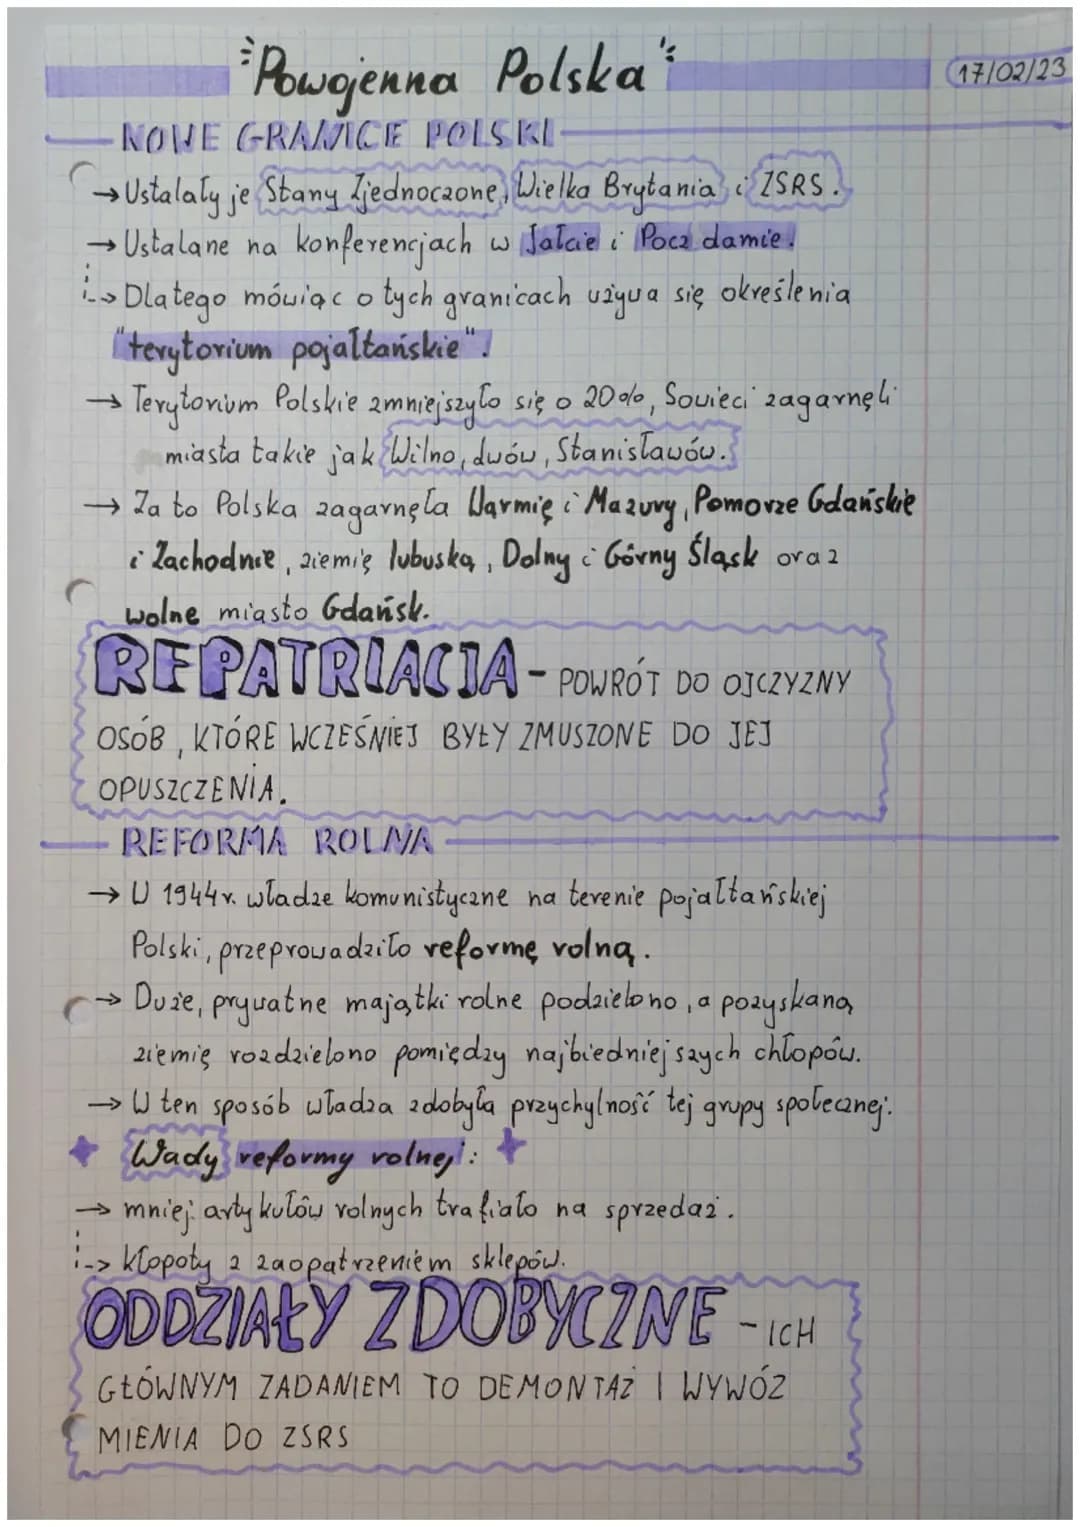 "Powojenna Polska"
17/02/23
NOWE GRANICE POLSKI
→ Ustalały je Stany Zjednoczone, Wielka Brytania i ZSRS.
→ Ustalane na konferencjach w Jałcie i Poczdamie.
↳ Dlatego mówiąc o tych granicach używa się określenia
"terytorium pojałtańskie".
→ Terytorium Polskie zmniejszyło się o 20%, Sowieci zagarnęli
miasta takie jak Wilno, Lwów, Stanisławów.
→ Za to Polska zagarnęła Warmię i Mazury, Pomorze Gdańskie
i Zachodnie, ziemię lubuską, Dolny i Górny Śląsk oraz
wolne miasto Gdańsk.
REPATRIACJA - POWRÓT DO OJCZYZNY
OSÓB, KTÓRE WCZEŚNIEJ BYŁY ZMUSZONE DO JEJ
OPUSZCZENIA.
REFORMA ROLNA
→ W 1944r. władze komunistyczne na terenie pojałtańskiej
Polski, przeprowadziło reformę rolną.
→ Duże, prywatne majątki rolne podzielono, a pozyskaną
ziemię rozdzielono pomiędzy najbiedniejszych chłopów.
→ W ten sposób władza zdobyła przychylność tej grupy społecznej.
Wady reformy rolnej:
→ mniej artykułów rolnych trafiało na sprzedaż.
↳ kłopoty z zaopatrzeniem sklepów.
ODDZIAŁY ZDOBYCZNE - ICH
GŁÓWNYM ZADANIEM TO DEMONTAŻ I WYWÓZ
MIENIA DO ZSRS